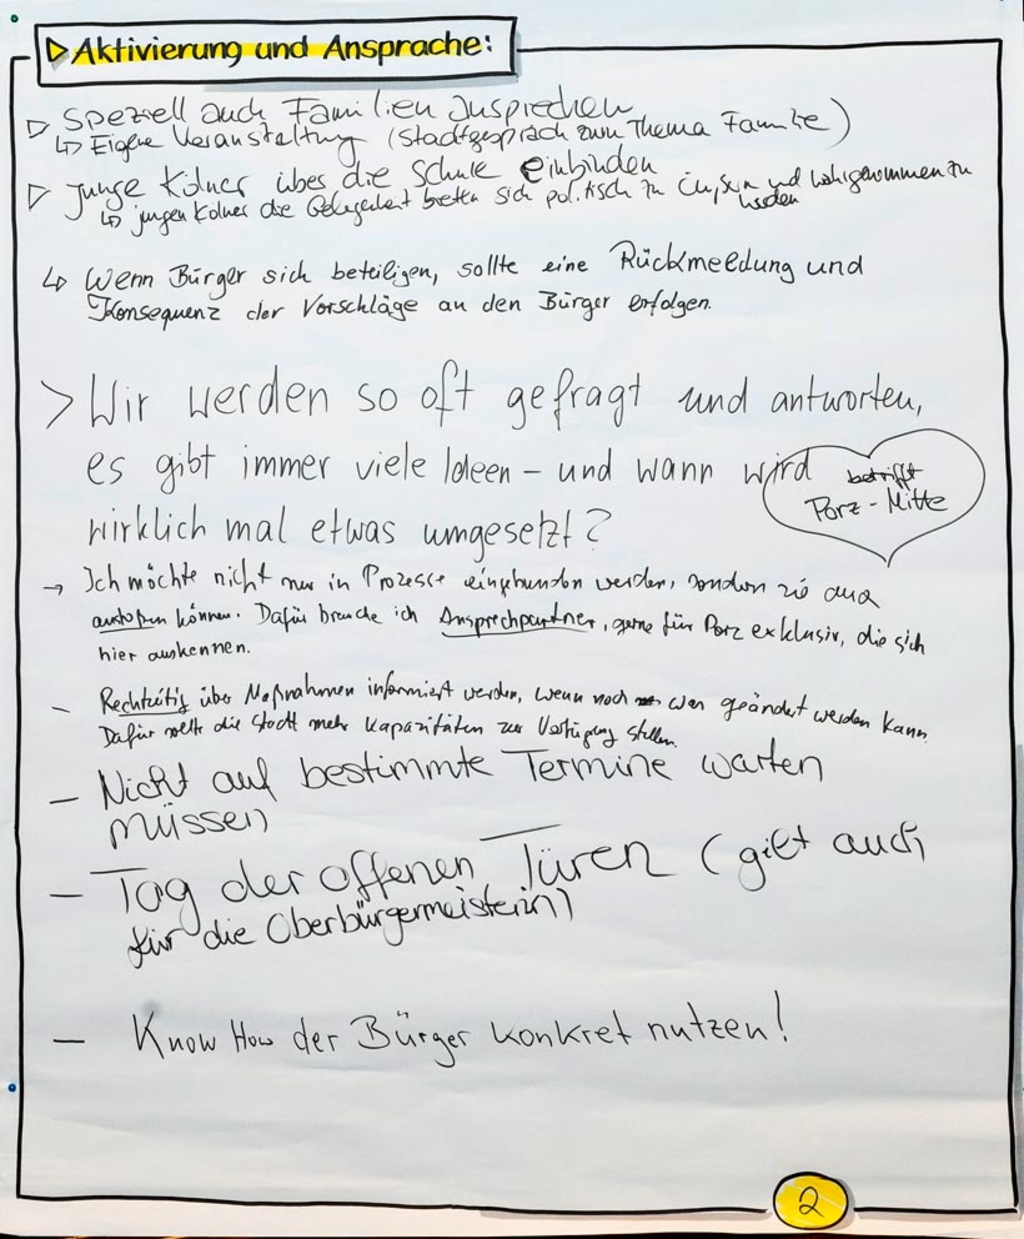 ▷ Aktivierung und Ansprache:
▷ Speziell auch Familien ansprechen
↳ Eigene Veranstaltung (Stadtgespräch zum Thema Familie)
▷ junge Kölner über die Schule einbinden
↳ jungen Kölner die Gelegenheit bieten sich politisch zu äußern und wahrgenommen zu
werden
↳ Wenn Bürger sich beteiligen, sollte eine Rückmeldung und
Konsequenz der Vorschläge an den Bürger erfolgen.
> Wir werden so oft gefragt und antworten,
es gibt immer viele Ideen – und wann wird
wirklich mal etwas umgesetzt?
betrifft
Porz-Mitte
→ Ich möchte nicht nur in Prozesse eingebunden werden, sondern sie auch
anstoßen können. Dafür brauche ich Ansprechpartner, gerne für Porz exklusiv, die sich
hier auskennen.
– Rechtzeitig über Maßnahmen informiert werden, wenn noch was geändert werden kann.
Dafür sollte die Stadt mehr Kapazitäten zur Verfügung stellen.
– Nicht auf bestimmte Termine warten
müssen
– Tag der offenen Türen (gilt auch
für die Oberbürgermeisterin)
– Know How der Bürger konkret nutzen!
2